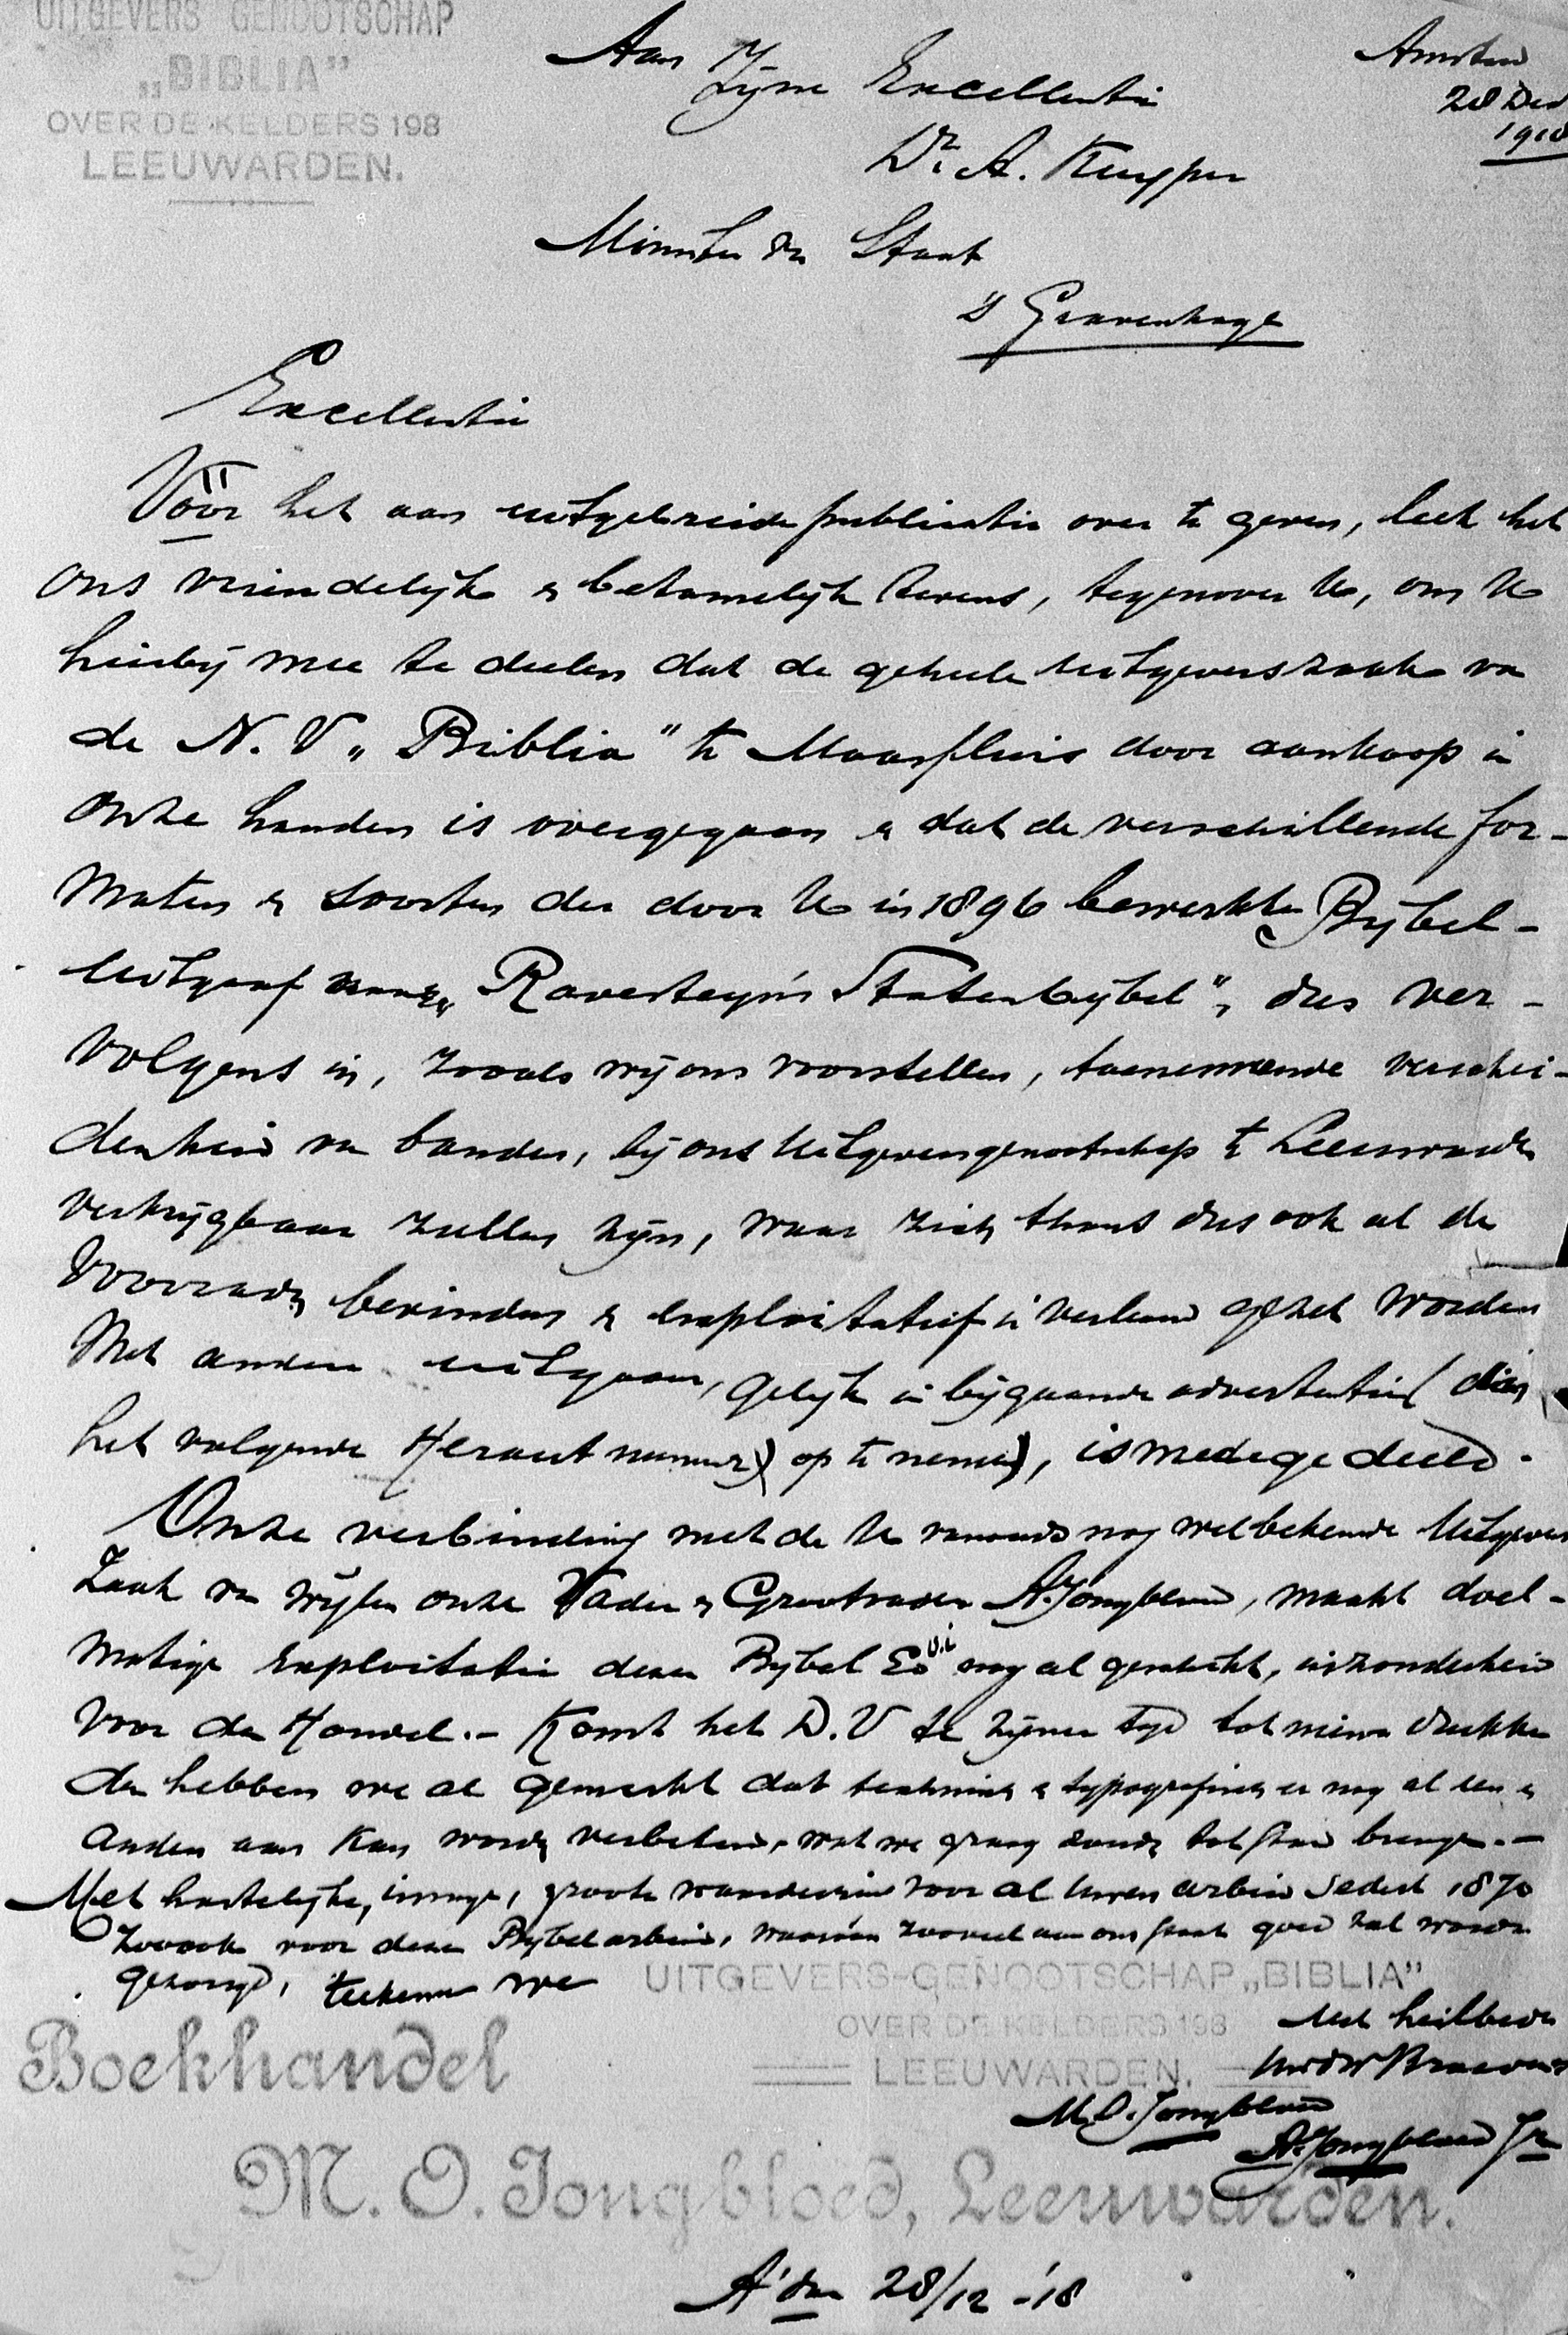 UITGEVERS GENOOTSCHAP
„BIBLIA”
OVER DE KELDERS 198
LEEUWARDEN.
Amsterd
28 Dec
1918
Aan Zijne Excellentie
Dr. A. Kuyper
Minister van Staat
's Gravenhage
Excellentie
Vóór het aan uitgebreide publicatie over te geven, leek het
ons vriendelijk & betamelijk tevens, tegenover U, om U
hierbij mee te deelen dat de geheele uitgeverszaak van
de N. V „Biblia” te Maassluis door aankoop in
onze handen is overgegaan & dat de verschillende for-
maten & soorten der door U in 1896 bewerkte Bijbel-
uitgaaf „Ravesteyn's Statenbijbel”, dus ver-
volgens in, zooals wij ons voorstellen, toenemende verschei-
denheid van banden, bij ons Uitgeversgenootschap te Leeuwarden
verkrijgbaar zullen zijn, waar zich thans dus ook al de
voorraden bevinden & exploitatief in verband gezet worden
Met andere uitgaven, gelijk in bijgaande advertentie (die in
het volgende Heraut nummer) op te nemen), is medegedeeld.
Onze verbinding met de U vanouds nog welbekende Uitgevers
Zaak van wijlen onze Vader & Grootvader A. Jongbloed, maakt doel-
matige exploitatie dezer Bijbel Ed o.i. nog al geschikt, inzonderheid
voor den Handel.- Komt het D.V te zijner tijd tot nieuwe drukken
dan hebben we al gemerkt dat technisch & typografisch er nog al een &
ander aan kan worden verbeterd, wat we graag zouden tot stand brengen.-
Met hartelijke, innige, groote waardeering voor al Uwen arbeid sedert 1870
Zoo ook voor dezen Bijbelarbeid, waarvan zooveel aan ons staat goed zal worden
gezorgd, teekenen we
UITGEVERS-GENOOTSCHAP „BIBLIA”
OVER DE KELDERS 198
LEEUWARDEN.
Met heilbede
Uw dw
M.O. Jongbloed
A. Jongbloed Jr
Boekhandel
M. O. Jongbloed, Leeuwarden.
A'dam 28/12 -'18